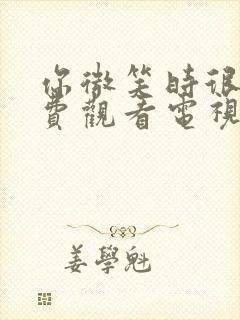 你微笑時很
費觀看電視
姜學魁